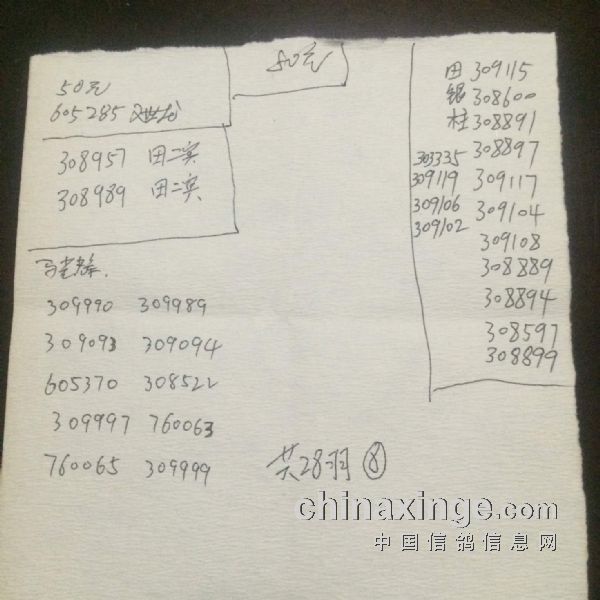 50元
605285
308957 田二宾
308989 田二宾
50元
田 309115
银 308600
柱 308891
303335 308897
309119 309117
309106 309104
309102
309108
308889
308894
308597
308899
309990 309989
309093 309094
605370 308522
309997 760063
760065 309999
共28羽 ⑧
chinaxinge.com
中国信鸽信息网